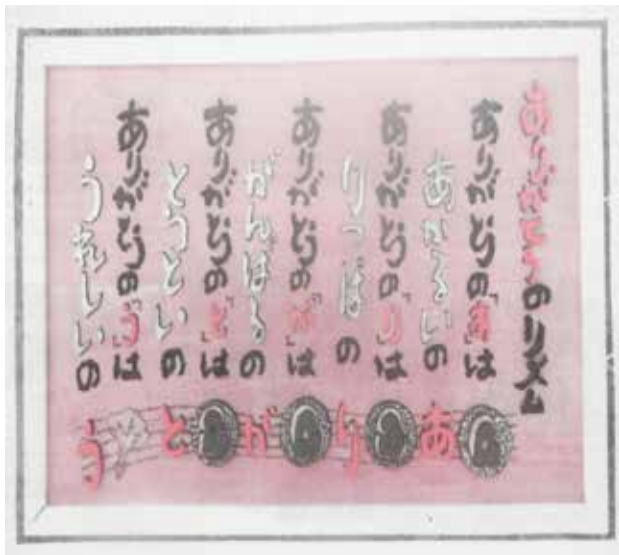 ありがとうのリズム
ありがとうの「あ」は
あかるいの
ありがとうの「り」は
りっぱの
ありがとうの「が」は
がんばるの
ありがとうの「と」は
とうといの
ありがとうの「う」は
うれしいの
あ
り
が
と
う